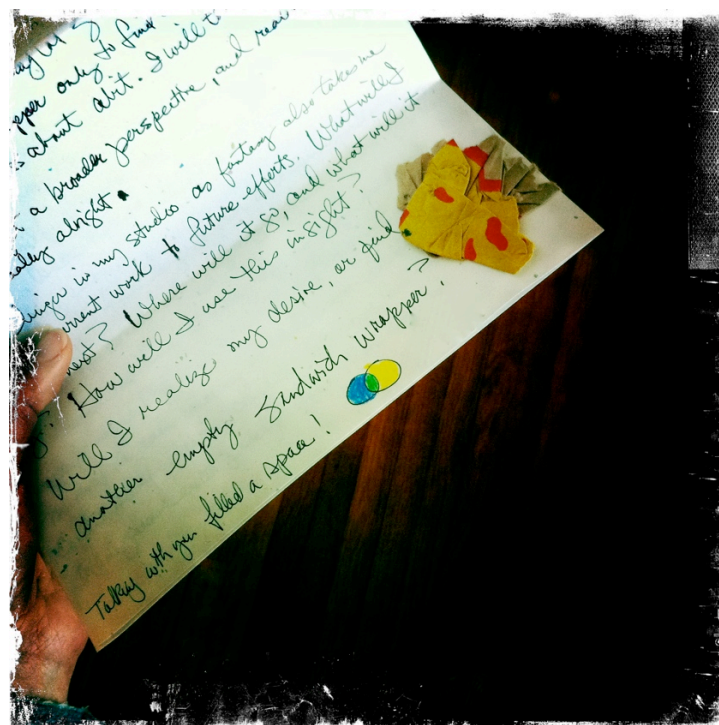 only to find
about a bit. I will t
a broader perspective, and
alright.
linger in my studio as fantasy also takes me
work to future efforts. What will I
next? Where will it go, and what will it
How will I use this insight?
Will I realize my desire, or find
another empty sandwich wrapper?
Talking with you filled a space!